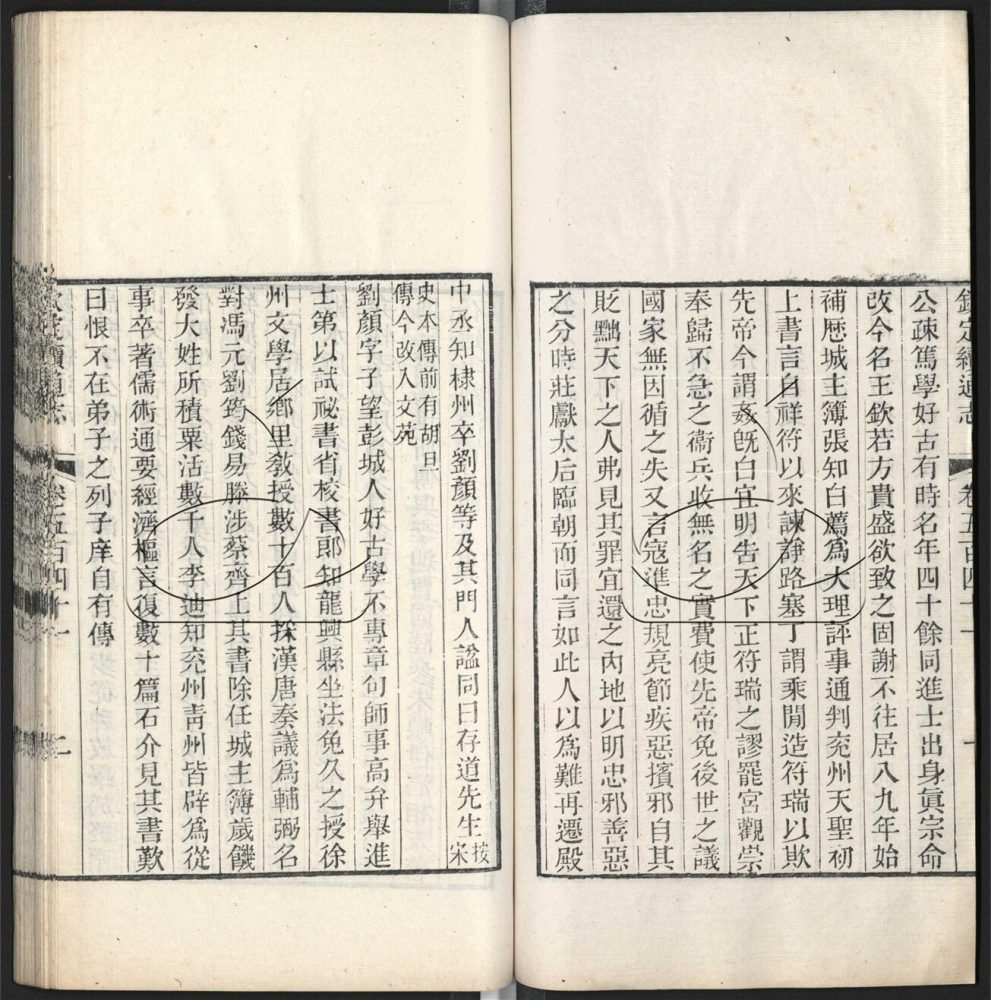 欽定續通志 卷五百四十一 一
公疎篤學好古有時名年四十餘同進士出身眞宗命
改今名王欽若方貴盛欲致之固謝不往居八九年始
補歴城主簿張知白薦爲大理評事通判兖州天聖初
上書言自祥符以來諫諍路塞丁謂乘閒造符瑞以欺
先帝今謂姦旣白宜明告天下正符瑞之謬罷宮觀崇
奉歸不急之衞兵收無名之實費使先帝免後世之議
國家無因循之失又言宼準忠規亮節疾惡擯邪自其
貶黜天下之人弗見其罪宜還之内地以明忠邪善惡
之分時莊獻太后臨朝而同言如此人以為難再遷殿
中丞知棣州卒劉顏等及其門人諡同曰存道先生按宋
史本傳前有胡旦
傳今改入文苑
劉顏字子望彭城人好古學不專章句師事高弁舉進
士第以試祕書省校書郎知龍興縣坐法免久之授徐
州文學居鄉里敎授數十百人採漢唐奏議爲輔弼名
對馮元劉筠錢易滕涉蔡齊上其書除任城主簿歲饑
發大姓所積粟活數千人李迪知兖州靑州皆辟爲從
事卒著儒術通要經濟樞言復數十篇石介見其書歎
曰恨不在弟子之列子庠自有傳
欽定續通志 卷五百四十一 二